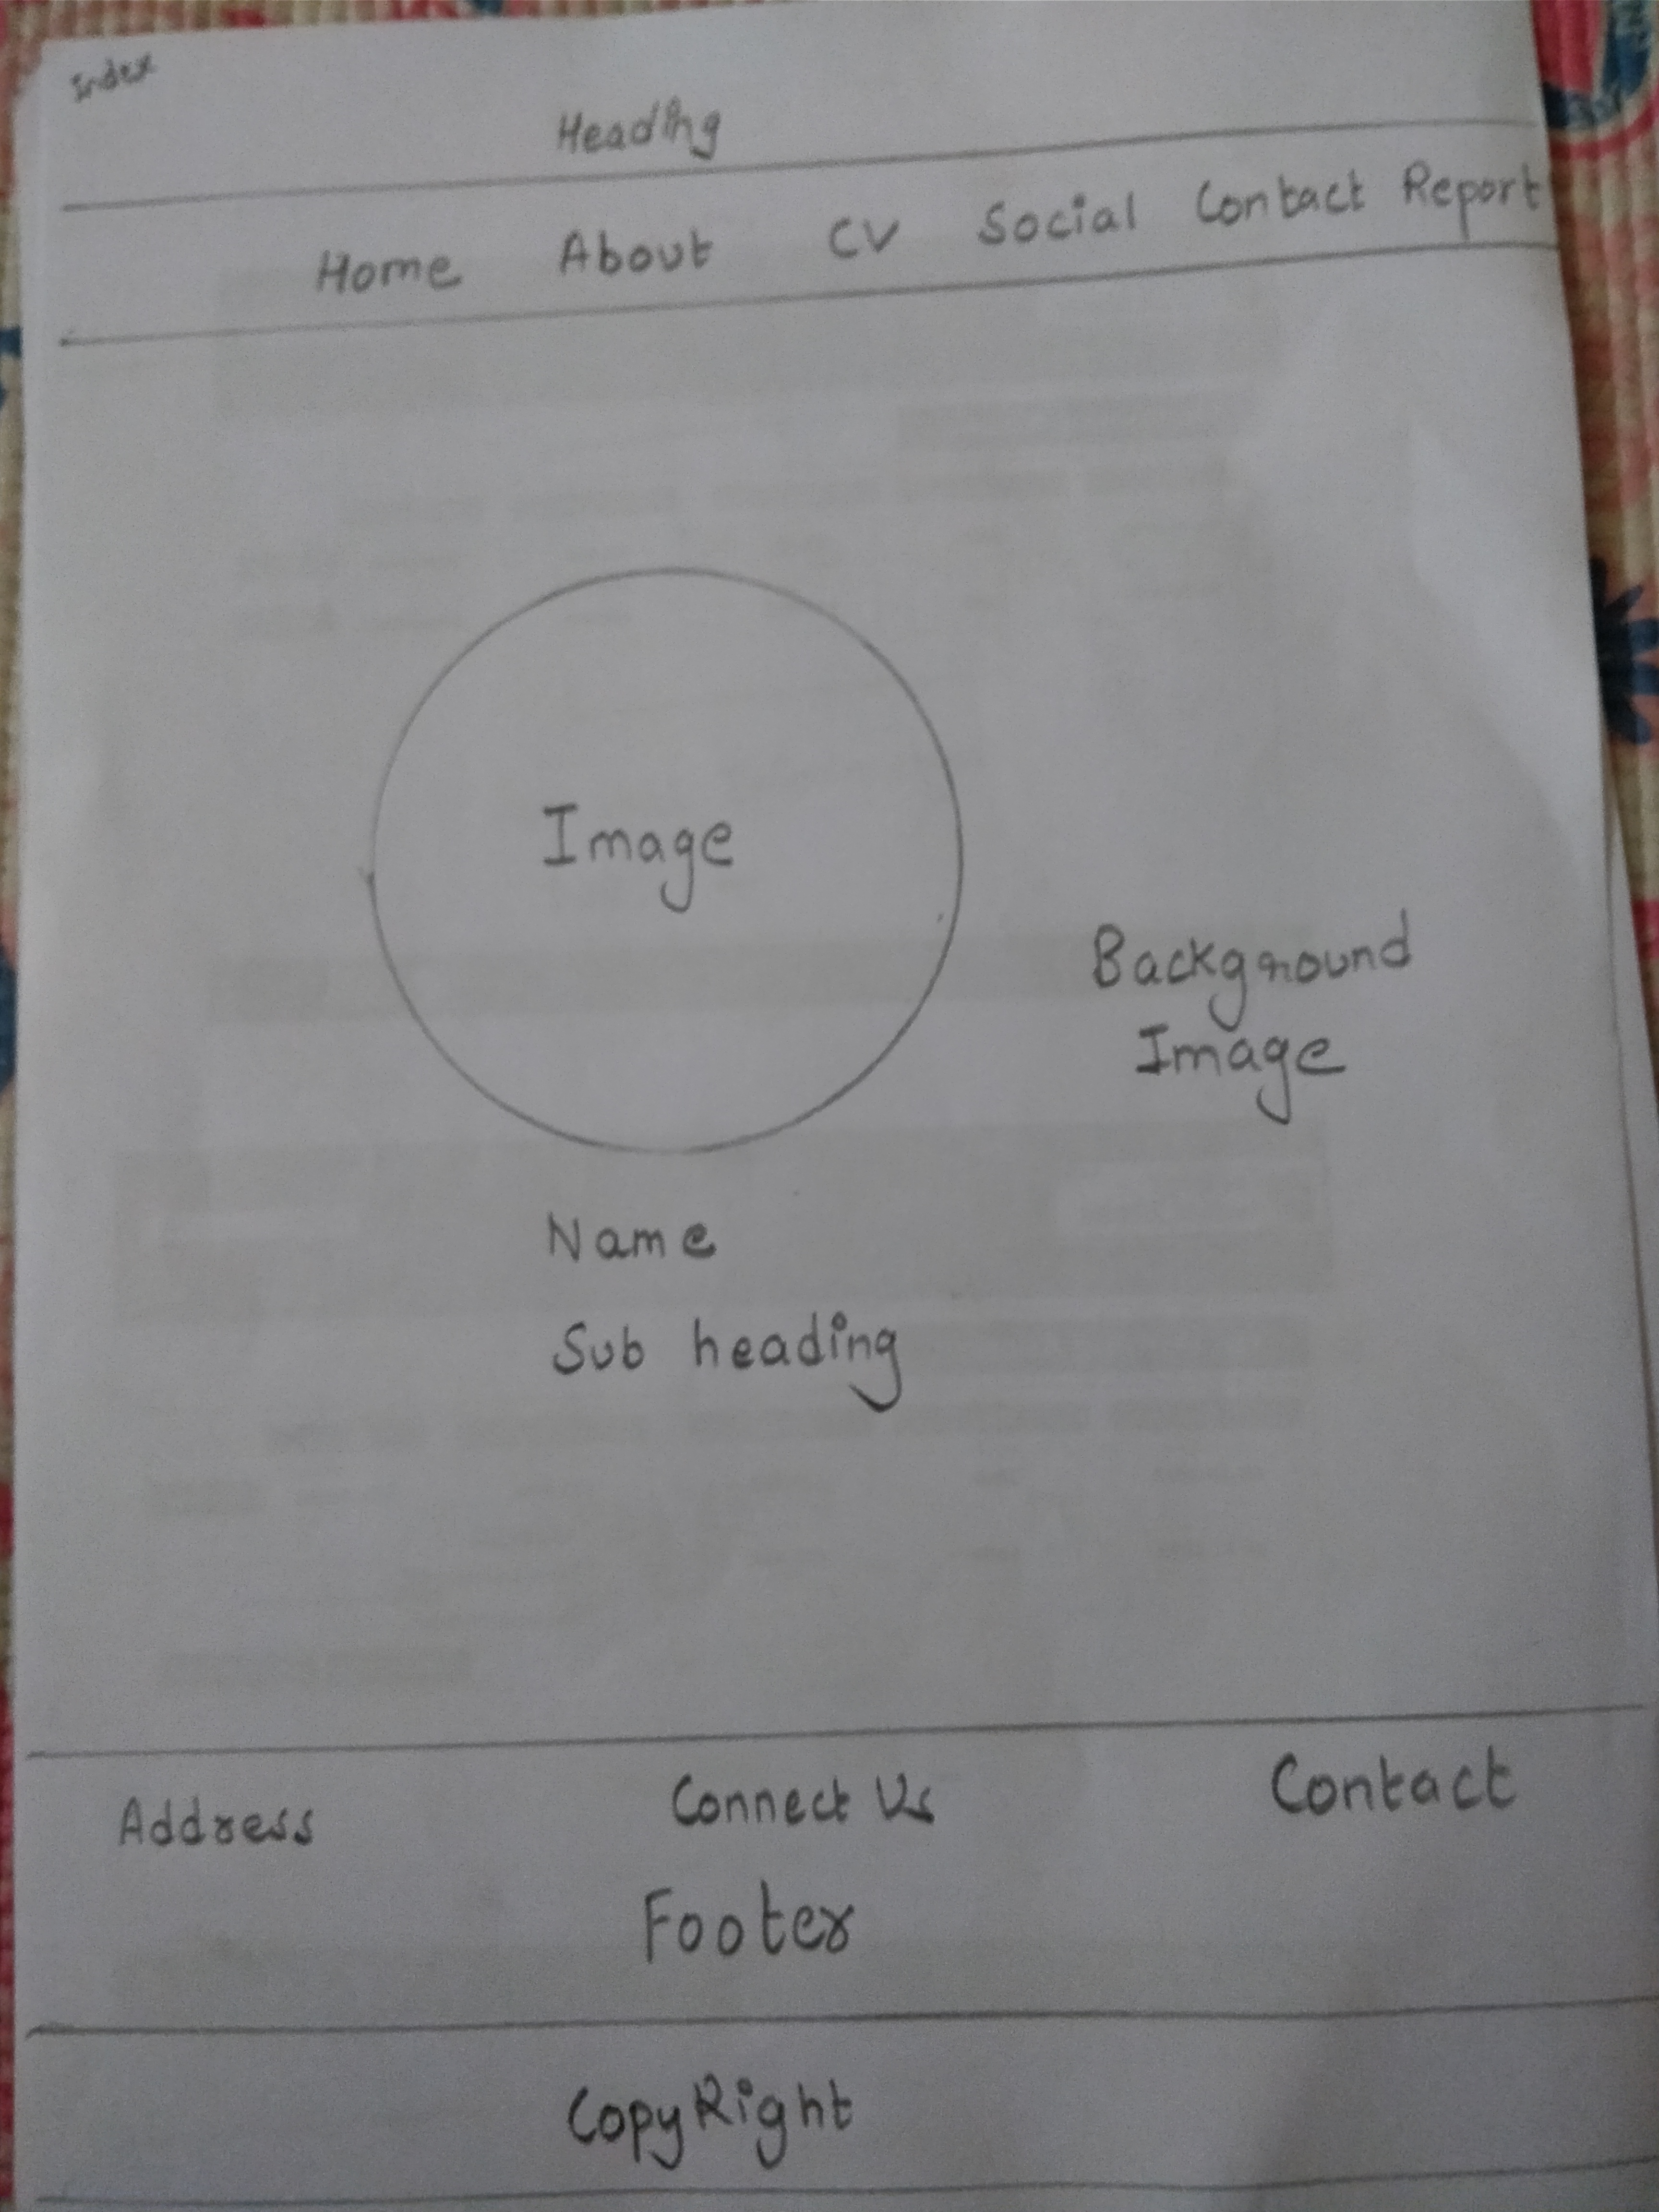 Index
Heading
Home About CV Social Contact Report
Image
Background
Image
Name
Sub heading
Address Connect Us Contact
Footer
CopyRight